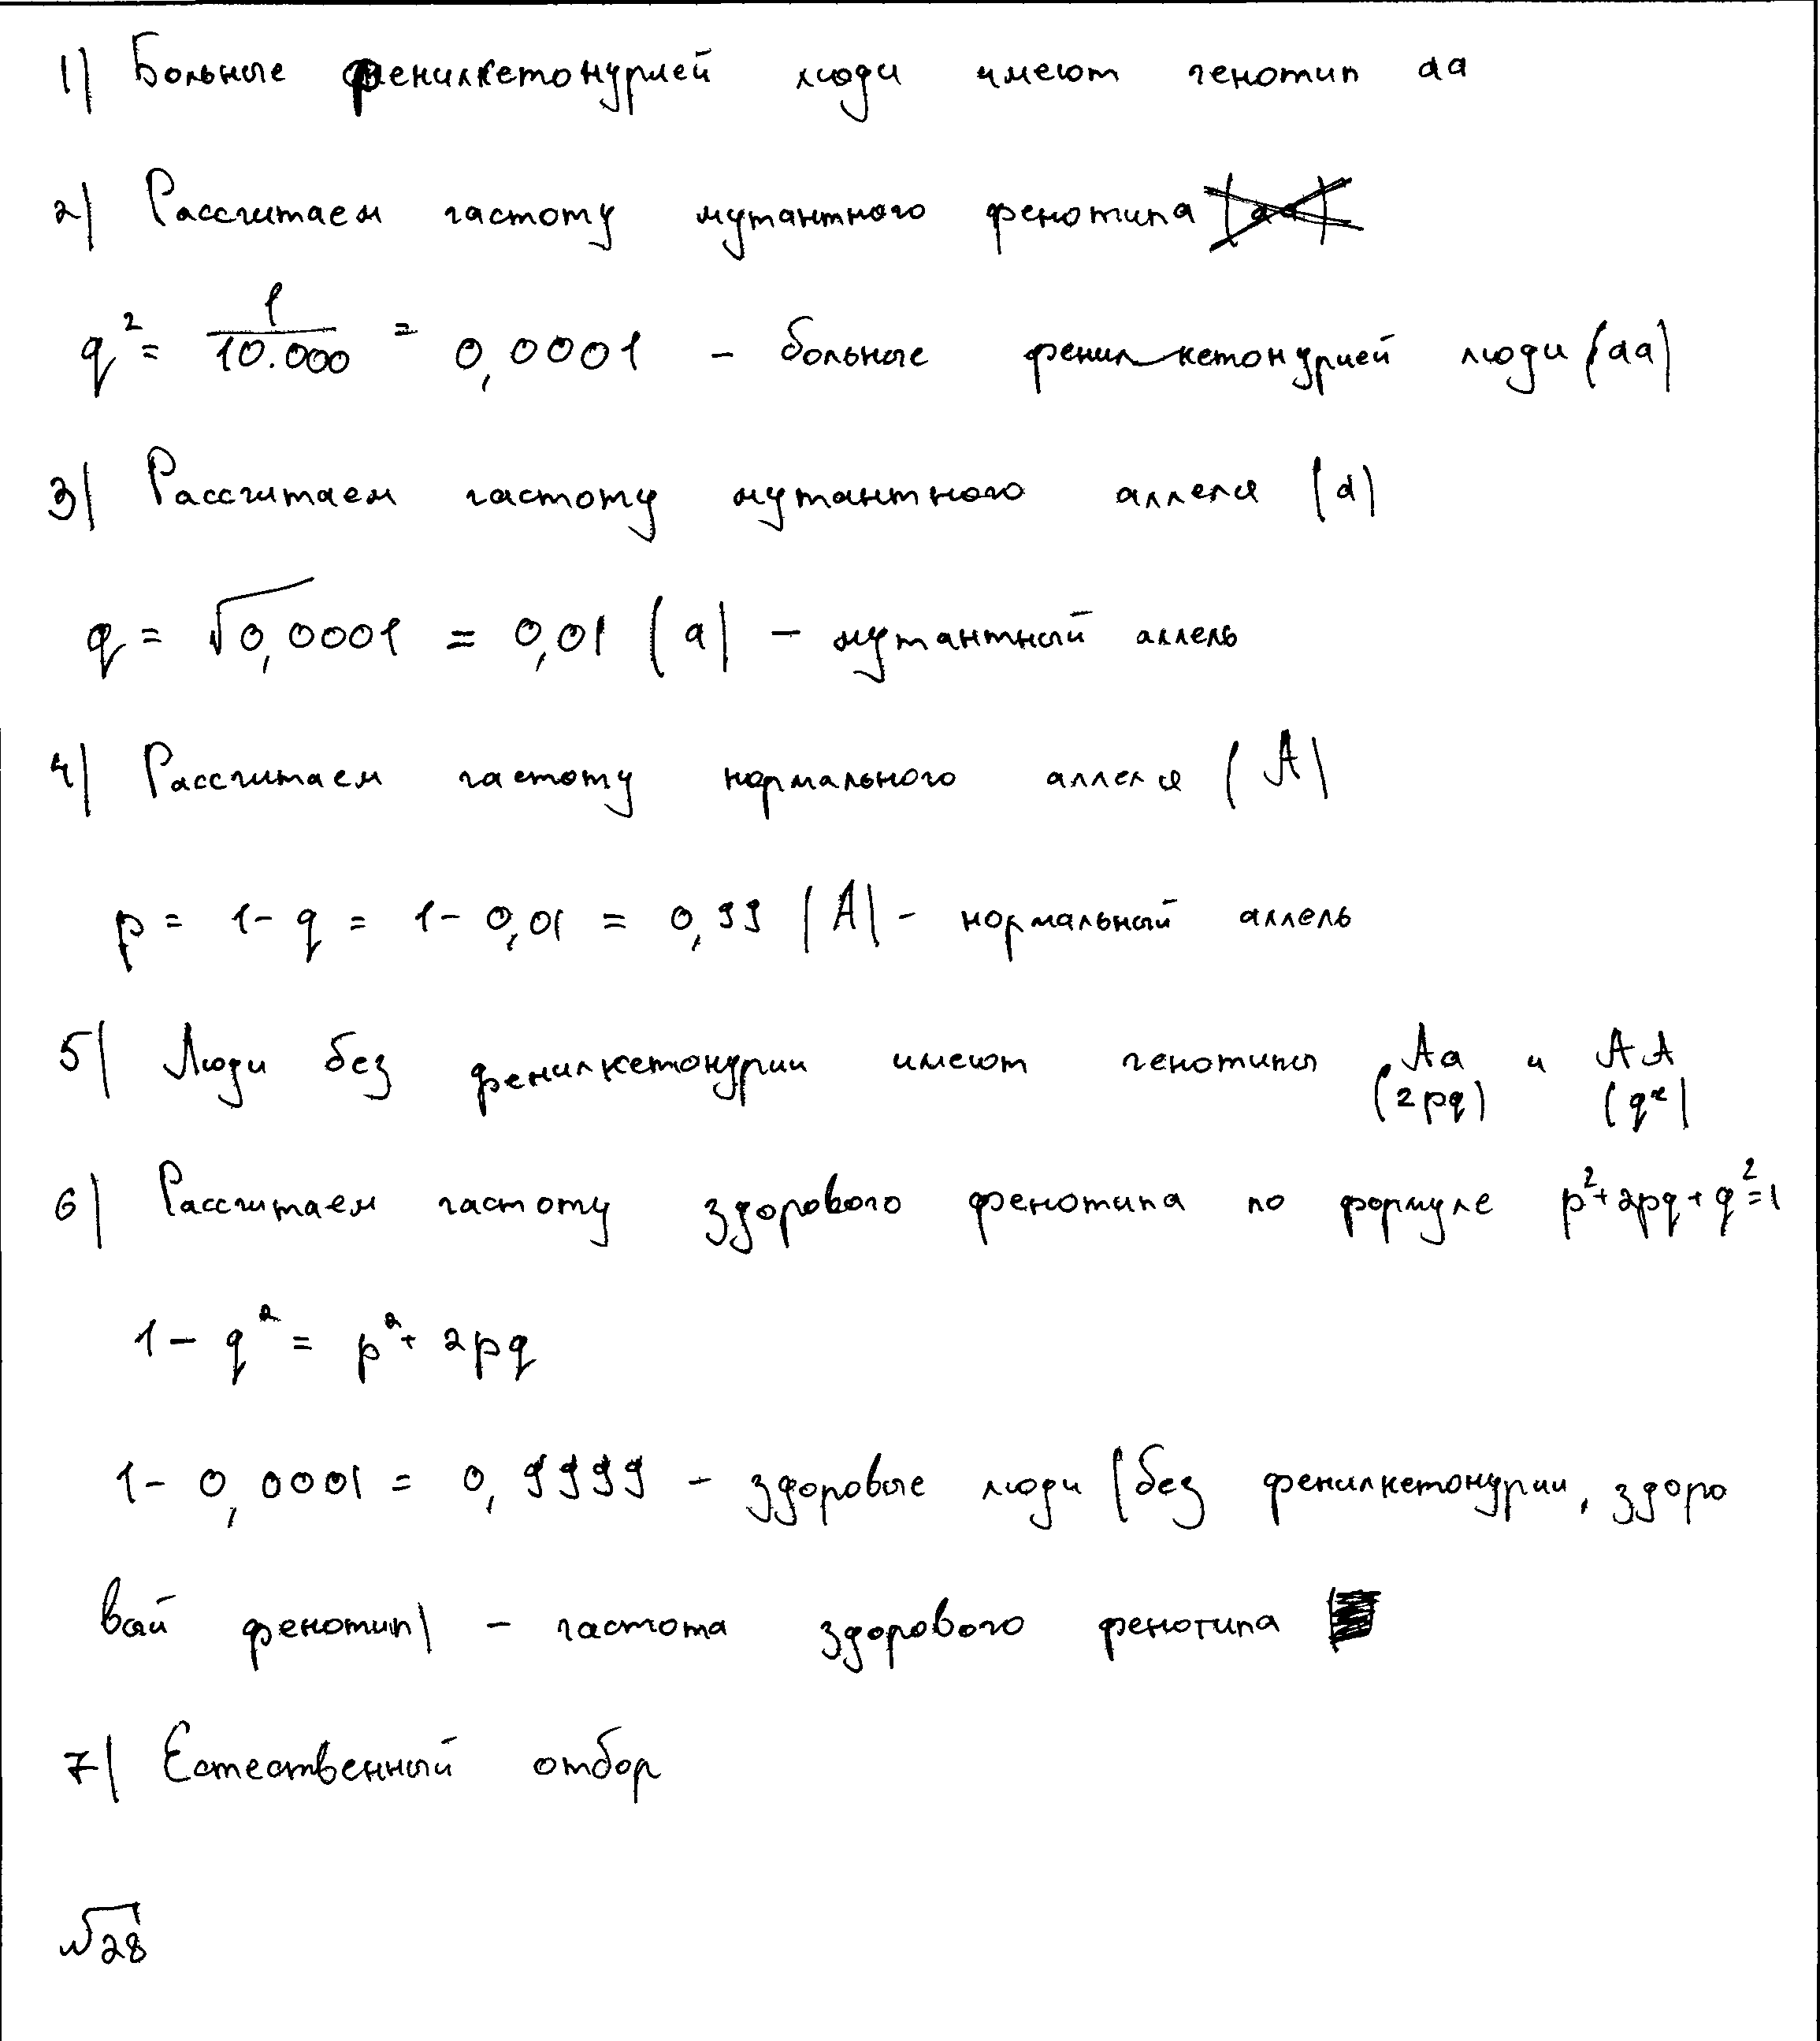 1) Больные фенилкетонурией люди имеют генотип aa
2) Рассчитаем частоту мутантного фенотипа
q² = 1/10.000 = 0,0001 - больные фенилкетонурией люди (aa)
3) Рассчитаем частоту мутантного аллеля (a)
q = √0,0001 = 0,01 (a) - мутантный аллель
4) Рассчитаем частоту нормального аллеля (A)
p = 1-q = 1-0,01 = 0,99 (A) - нормальный аллель
5) Люди без фенилкетонурии имеют генотипы Aa и AA
(2pq) (q²)
6) Рассчитаем частоту здорового фенотипа по формуле p²+2pq+q²=1
1 - q² = p² + 2pq
1 - 0,0001 = 0,9999 - здоровые люди (без фенилкетонурии, здоро
вай фенотип) - частота здорового фенотипа
7) Естественный отбор
№28